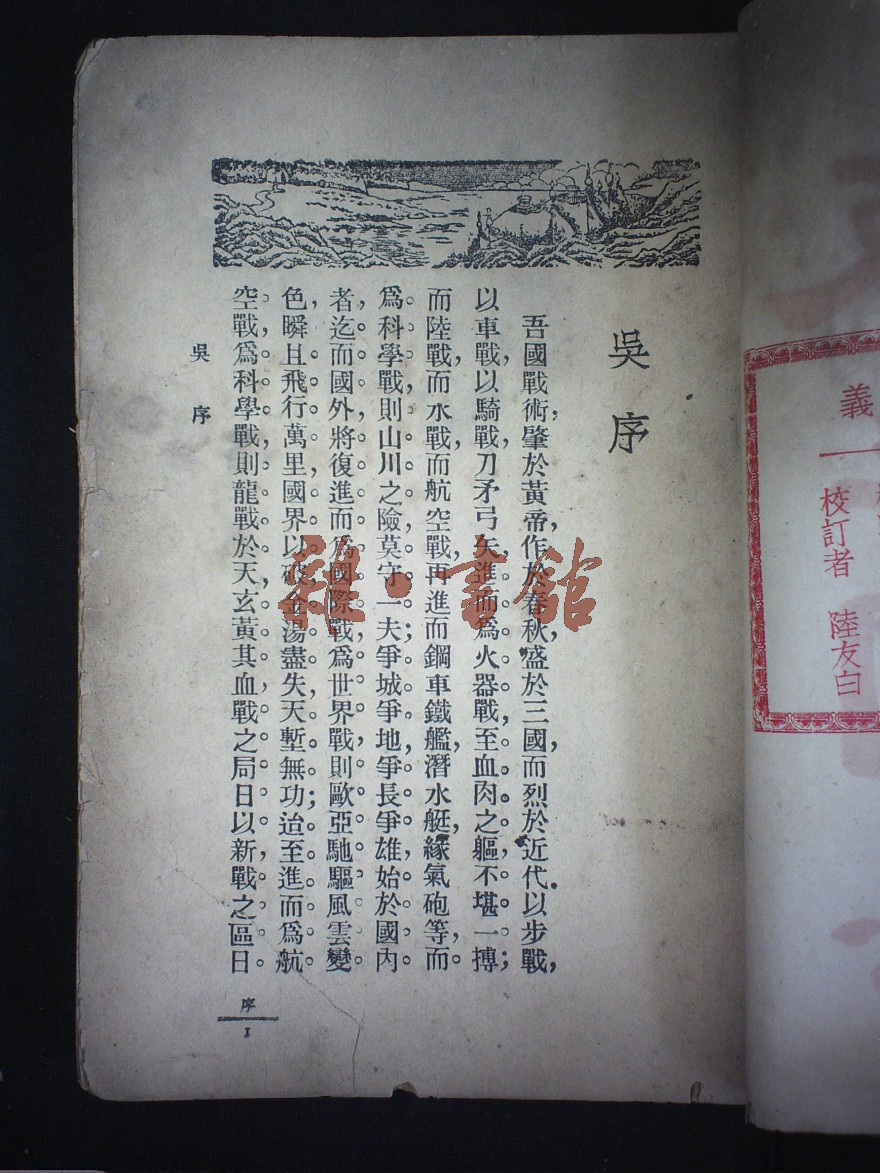 義
校訂者 陸友白
吳序
吾國戰術,肇於黃帝,作於春秋,盛於三國,而烈於近代。以步戰,
以車戰,以騎戰,刀矛弓矢,進而爲火器戰,至血肉之軀,不堪一搏;
而陸戰,而水戰,而航空戰,再進而鋼車鐵艦,潛水艇,綠氣砲等,而
爲科學戰則山川之險,莫守一夫;爭城爭地,爭長爭雄,始於國內
者,迄而國外,將復進而爲國際戰,爲世界戰,則歐亞馳驅,風雲變
色,瞬且飛行萬里,國界以破,金湯盡失,天塹無功;迨至進而爲航
空戰,爲科學戰,則龍戰於天,玄黃其血,戰之局日以新,戰之區日
吳序
序
1
雜·書館